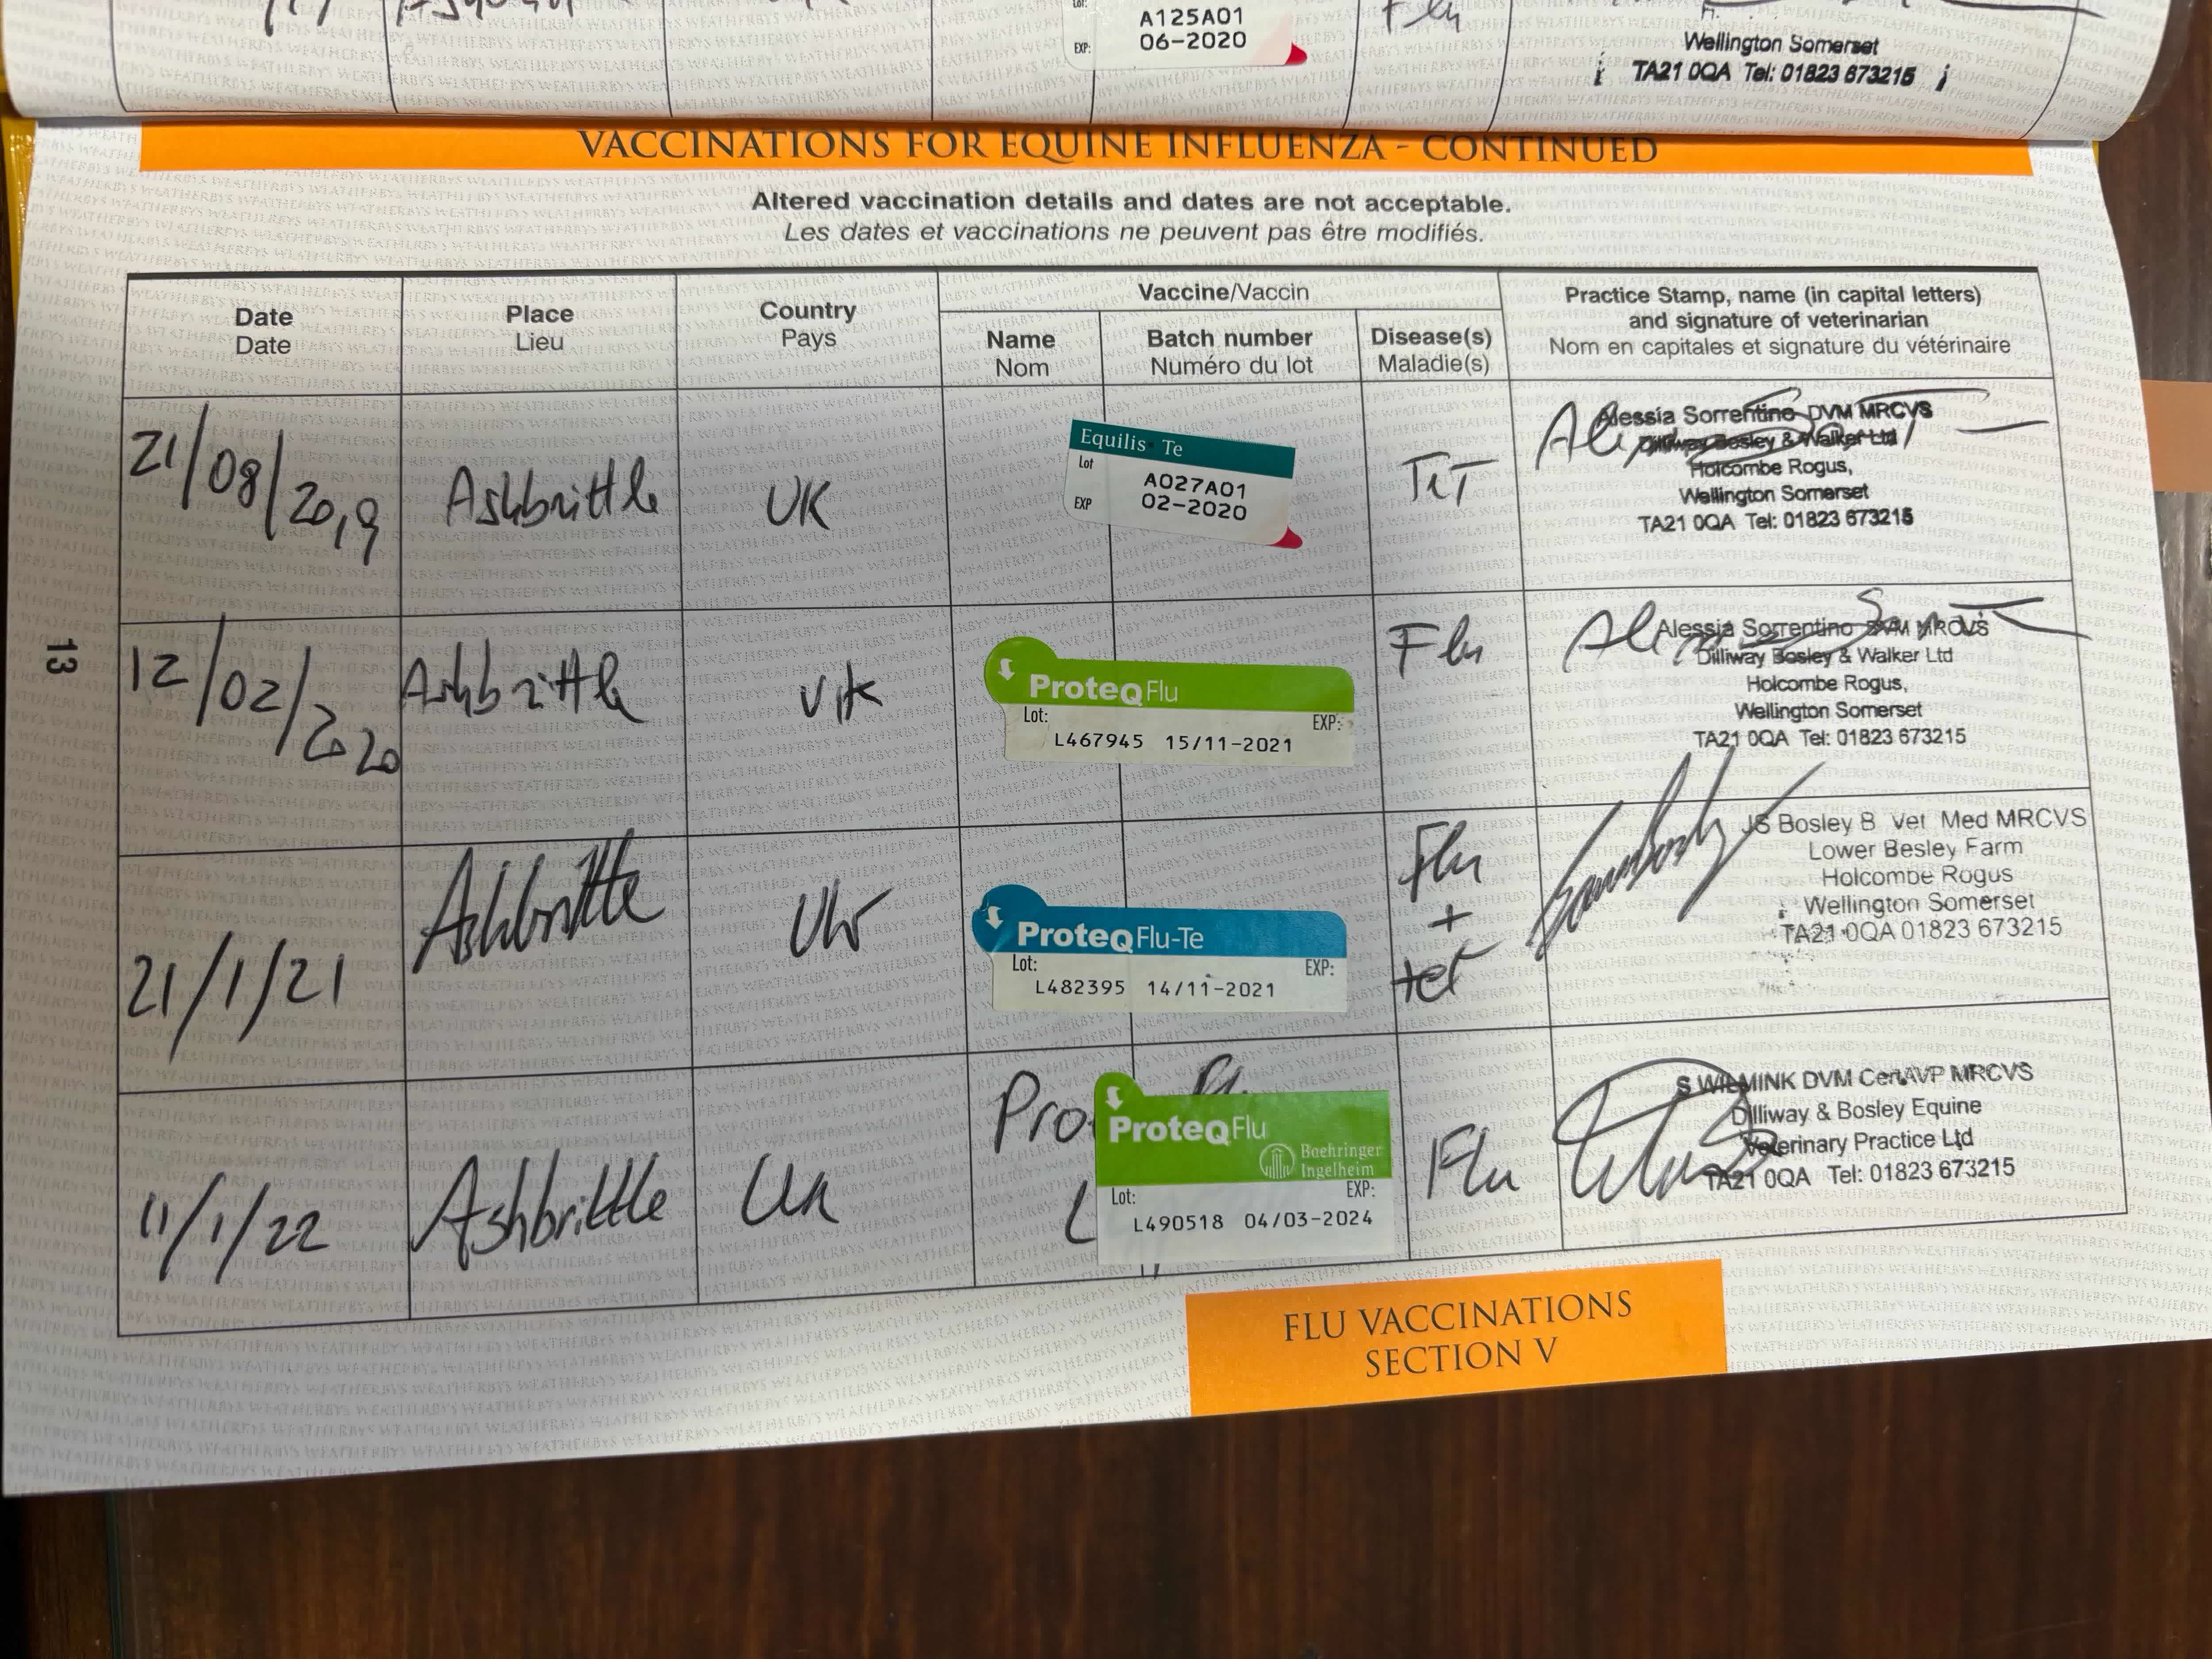 Lot:
A125A01
EXP: 06-2020
Flu
Wellington Somerset
TA21 0QA Tel: 01823 673215
VACCINATIONS FOR EQUINE INFLUENZA - CONTINUED
Altered vaccination details and dates are not acceptable.
Les dates et vaccinations ne peuvent pas être modifiés.
Date
Date
Place
Lieu
Country
Pays
Vaccine/Vaccin
Name
Nom
Batch number
Numéro du lot
Disease(s)
Maladie(s)
Practice Stamp, name (in capital letters)
and signature of veterinarian
Nom en capitales et signature du vétérinaire
21/08/2019
Ashbrittle
UK
Equilis Te
Lot
A027A01
EXP 02-2020
TeT
Alessia Sorrentino DVM MRCVS
Dilliway Bosley & Walker Ltd
Holcombe Rogus,
Wellington Somerset
TA21 0QA Tel: 01823 673215
12/02/2020
Ashbrittle
UK
ProteqFlu
Lot: EXP:
L467945 15/11-2021
Flu
Alessia Sorrentino DVM MRCVS
Dilliway Bosley & Walker Ltd
Holcombe Rogus,
Wellington Somerset
TA21 0QA Tel: 01823 673215
21/1/21
Ashbrittle
UK
ProteqFlu-Te
Lot: EXP:
L482395 14/11-2021
Flu
+
tet
JS Bosley B vet Med MRCVS
Lower Besley Farm
Holcombe Rogus
Wellington Somerset
TA21 0QA 01823 673215
11/1/22
Ashbrittle
UK
Pro
L
ProteqFlu
Boehringer
Ingelheim
Lot: EXP:
L490518 04/03-2024
Flu
S WILMINK DVM CertAVP MRCVS
Dilliway & Bosley Equine
Veterinary Practice Ltd
TA21 0QA Tel: 01823 673215
13
FLU VACCINATIONS
SECTION V